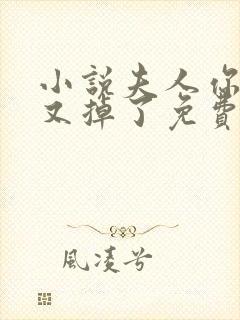 小說夫人你
又掉了免費
風凌兮